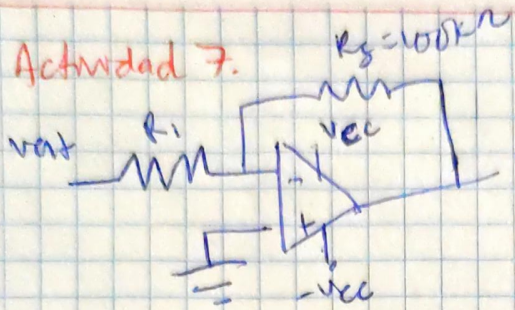 Actividad 7.
Rf = 100kΩ
Vent
R1
Vcc
-
+
-Vcc